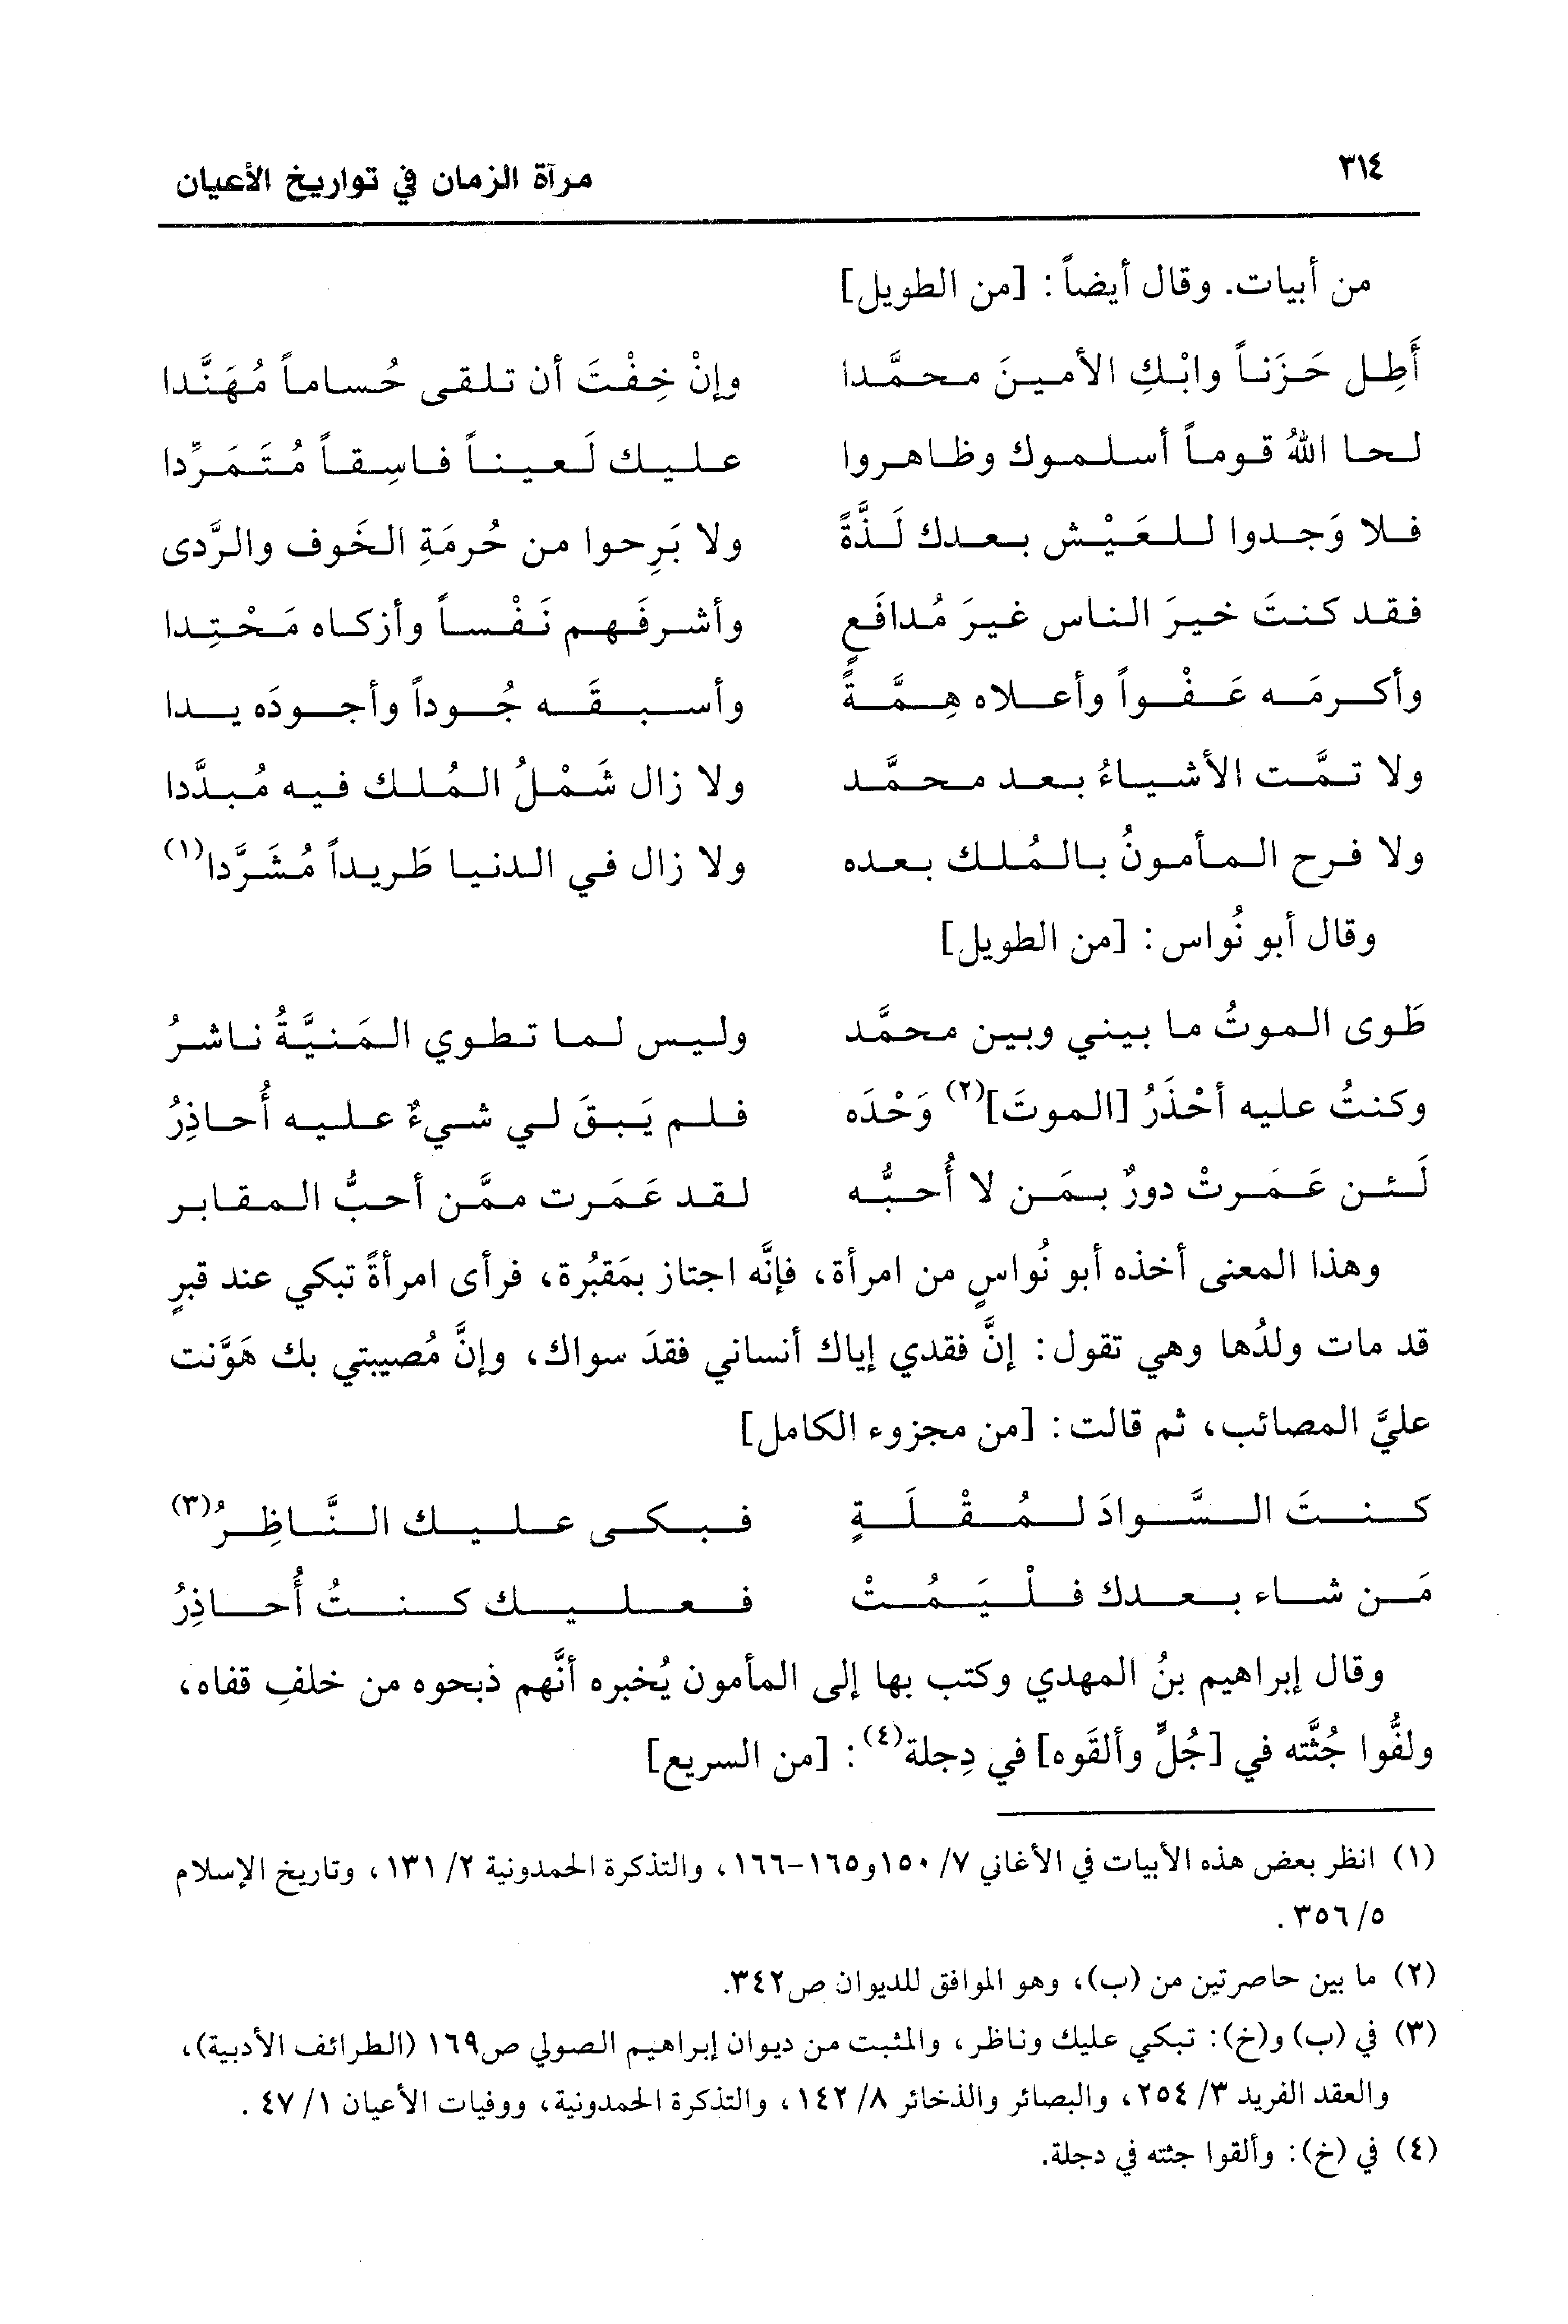 ٣١٤ مرآة الزمان في تواريخ الأعيان
من أبيات. وقال أيضاً: [من الطويل]
أَطِل حَزَناً وابْكِ الأمينَ محمَّدا وإنْ خِفْتَ أن تلقى حُساماً مُهَنَّدا
لحا اللهُ قوماً أسلموك وظاهروا عليك لَعيناً فاسِقاً مُتَمَرِّدا
فلا وَجدوا للعَيْش بعدك لَذَّةً ولا بَرِحوا من حُرمَةِ الخَوف والرَّدى
فقد كنتَ خيرَ الناس غيرَ مُدافَعٍ وأشرفَهم نَفْساً وأزكاه مَحْتِدا
وأكرمَه عَفْواً وأعلاه هِمَّةً وأسبقَه جُوداً وأجودَه يدا
ولا تمَّت الأشياءُ بعد محمَّد ولا زال شَمْلُ المُلك فيه مُبدَّدا
ولا فرح المأمونُ بالمُلك بعده ولا زال في الدنيا طَريداً مُشَرَّدا(١)
وقال أبو نُواس: [من الطويل]
طَوى الموتُ ما بيني وبين محمَّد وليس لما تطوي المَنيَّةُ ناشرُ
وكنتُ عليه أحْذَرُ [الموتَ](٢) وَحْدَه فلم يَبقَ لي شيءٌ عليه أُحاذِرُ
لَئن عَمَرتْ دورٌ بمَن لا أُحبُّه لقد عَمَرت ممَّن أحبُّ المقابر
وهذا المعنى أخذه أبو نُواسٍ من امرأة، فإنَّه اجتاز بمَقبُرة، فرأى امرأةً تبكي عند قبرٍ
قد مات ولدُها وهي تقول: إنَّ فقدي إياك أنساني فقدَ سواك، وإنَّ مُصيبتي بك هَوَّنت
عليَّ المصائب، ثم قالت: [من مجزوء الكامل]
كنتَ السَّوادَ لمُقْلَةٍ فبكى عليك النَّاظِرُ(٣)
مَن شاء بعدك فلْيَمُتْ فعليك كنتُ أُحاذِرُ
وقال إبراهيم بنُ المهدي وكتب بها إلى المأمون يُخبره أنَّهم ذبحوه من خلفِ قفاه،
ولفُّوا جُثَّته في [جُلٍّ وألقَوه] في دِجلة(٤): [من السريع]
(١) انظر بعض هذه الأبيات في الأغاني ٧/ ١٥٠و١٦٥-١٦٦، والتذكرة الحمدونية ٢/ ١٣١، وتاريخ الإسلام
٥/ ٣٥٦.
(٢) ما بين حاصرتين من (ب)، وهو الموافق للديوان ص٣٤٢.
(٣) في (ب) و(خ): تبكي عليك وناظر، والمثبت من ديوان إبراهيم الصولي ص١٦٩ (الطرائف الأدبية)،
والعقد الفريد ٣/ ٢٥٤، والبصائر والذخائر ٨/ ١٤٢، والتذكرة الحمدونية، ووفيات الأعيان ١/ ٤٧.
(٤) في (خ): وألقوا جثته في دجلة.